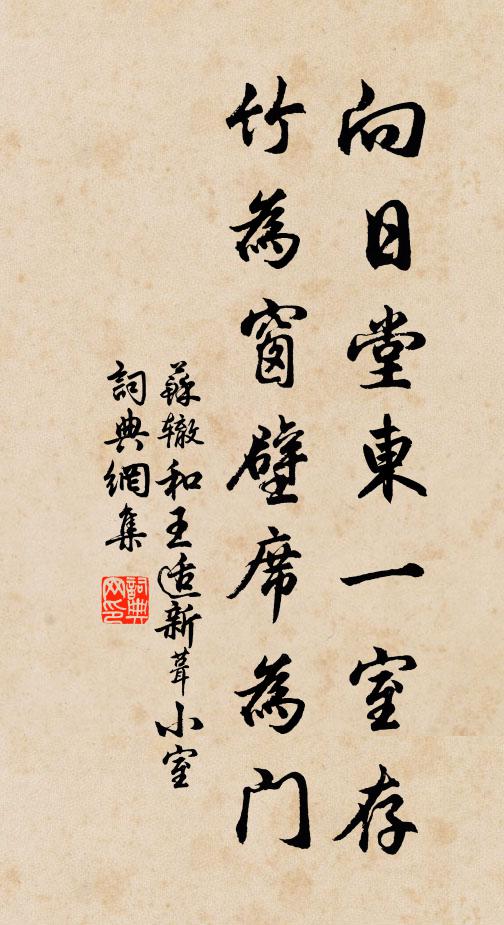 向日堂東一室存
竹為窗壁席為門
蘇轍和王适新葺小室
詞典網集
詞典
网印